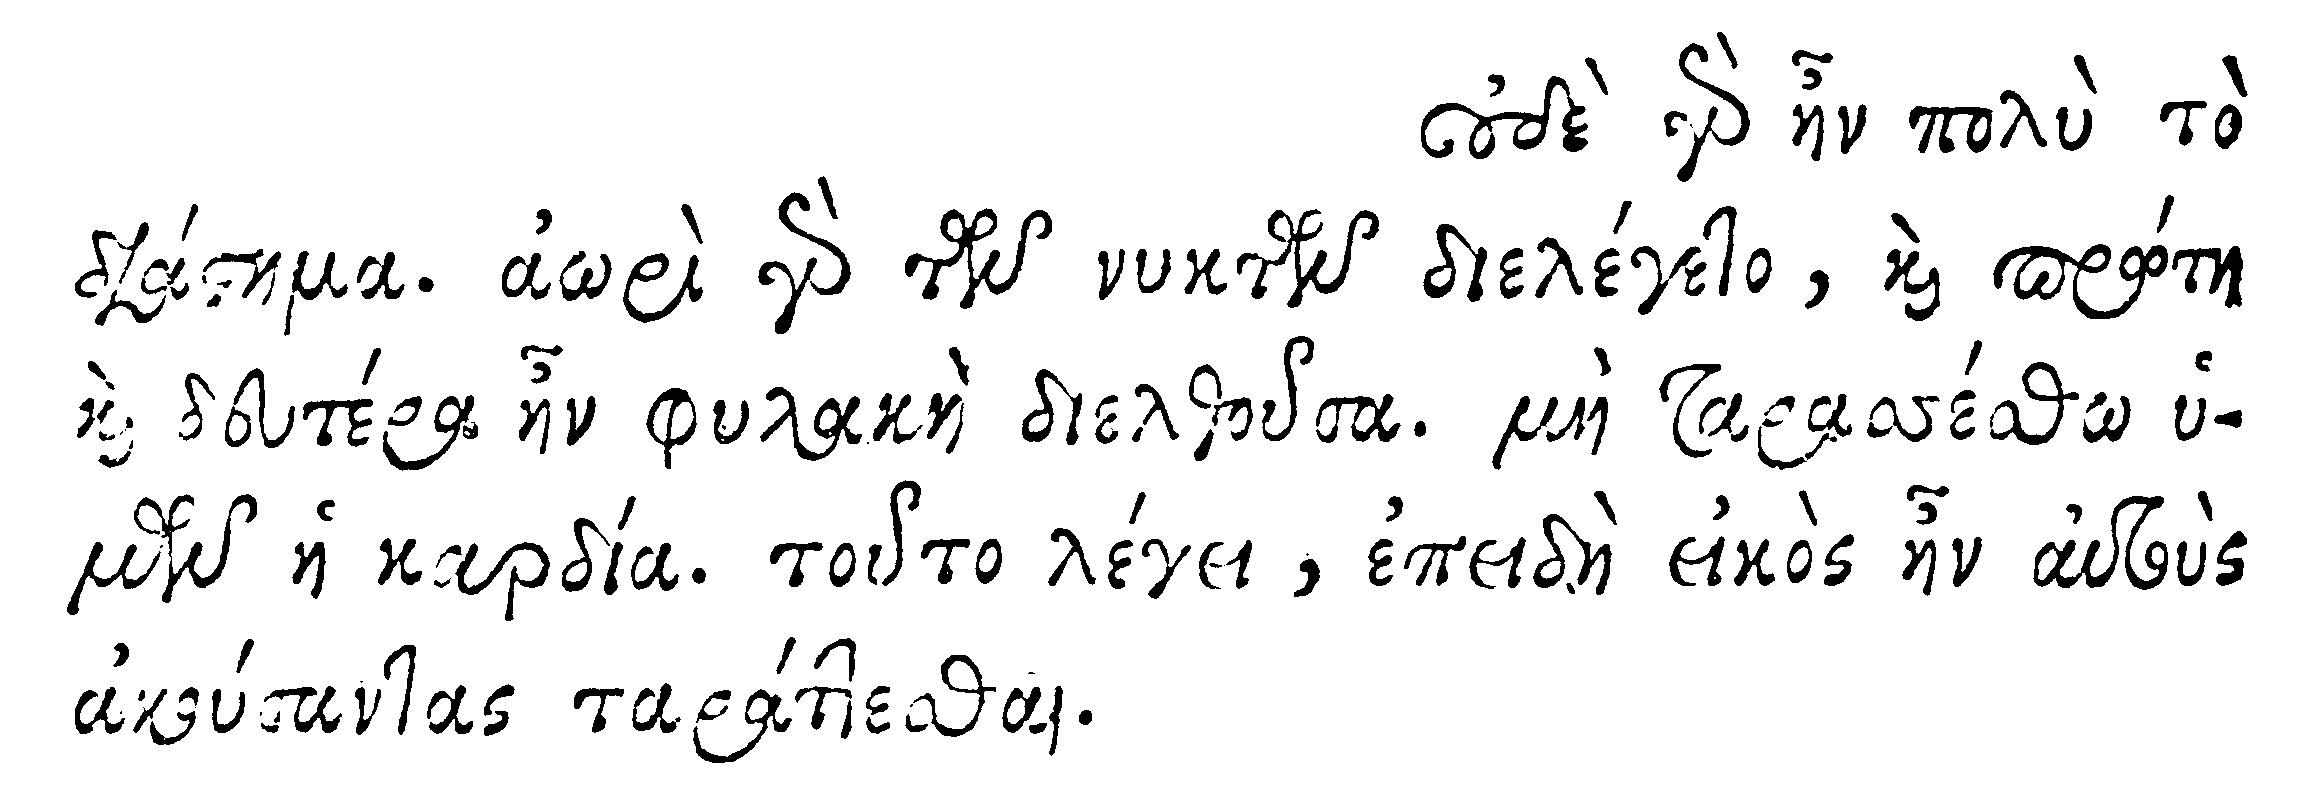 οὐδὲ γὰρ ἦν πολὺ τὸ
διάστημα. ἀωρὶ γὰρ τῶν νυκτῶν διελέγετο, καὶ πρώτη
καὶ δευτέρα ἦν φυλακὴ διελθοῦσα. μὴ ταρασσέσθω ὑ-
μῶν ἡ καρδία. τοῦτο λέγει, ἐπειδὴ εἰκὸς ἦν αὐτοὺς
ἀκούσαντας ταράττεσθαι.